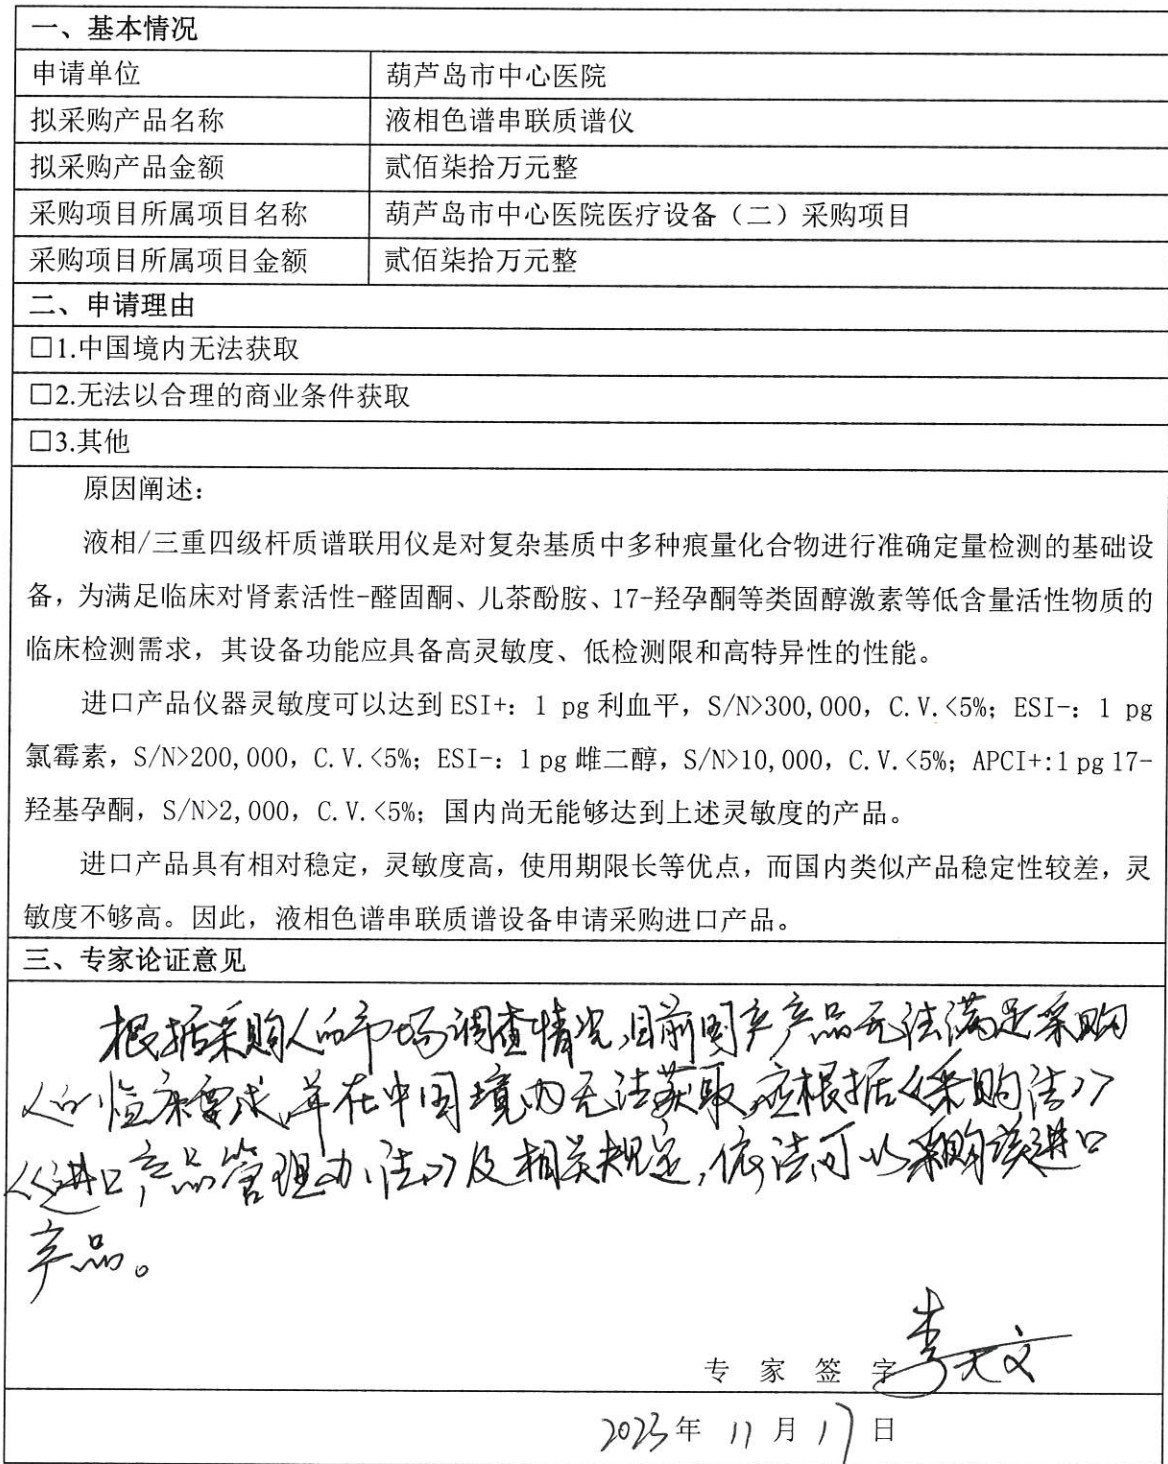 一、基本情况
申请单位 葫芦岛市中心医院
拟采购产品名称 液相色谱串联质谱仪
拟采购产品金额 贰佰柒拾万元整
采购项目所属项目名称 葫芦岛市中心医院医疗设备（二）采购项目
采购项目所属项目金额 贰佰柒拾万元整
二、申请理由
□1.中国境内无法获取
□2.无法以合理的商业条件获取
□3.其他
原因阐述：
液相/三重四级杆质谱联用仪是对复杂基质中多种痕量化合物进行准确定量检测的基础设
备，为满足临床对肾素活性-醛固酮、儿茶酚胺、17-羟孕酮等类固醇激素等低含量活性物质的
临床检测需求，其设备功能应具备高灵敏度、低检测限和高特异性的性能。
进口产品仪器灵敏度可以达到 ESI+：1 pg 利血平，S/N>300,000，C.V.<5%；ESI-：1 pg
氯霉素，S/N>200,000，C.V.<5%；ESI-：1 pg 雌二醇，S/N>10,000，C.V.<5%；APCI+:1 pg 17-
羟基孕酮，S/N>2,000，C.V.<5%；国内尚无能够达到上述灵敏度的产品。
进口产品具有相对稳定，灵敏度高，使用期限长等优点，而国内类似产品稳定性较差，灵
敏度不够高。因此，液相色谱串联质谱设备申请采购进口产品。
三、专家论证意见
根据采购人的市场调查情况，目前国产产品无法满足采购
人的临床要求，并在中国境内无法获取，应根据《采购法》
《进口产品管理办法》及相关规定，依法可以采购该进口
产品。
专 家 签 字 李天文
2023年 11 月 17 日